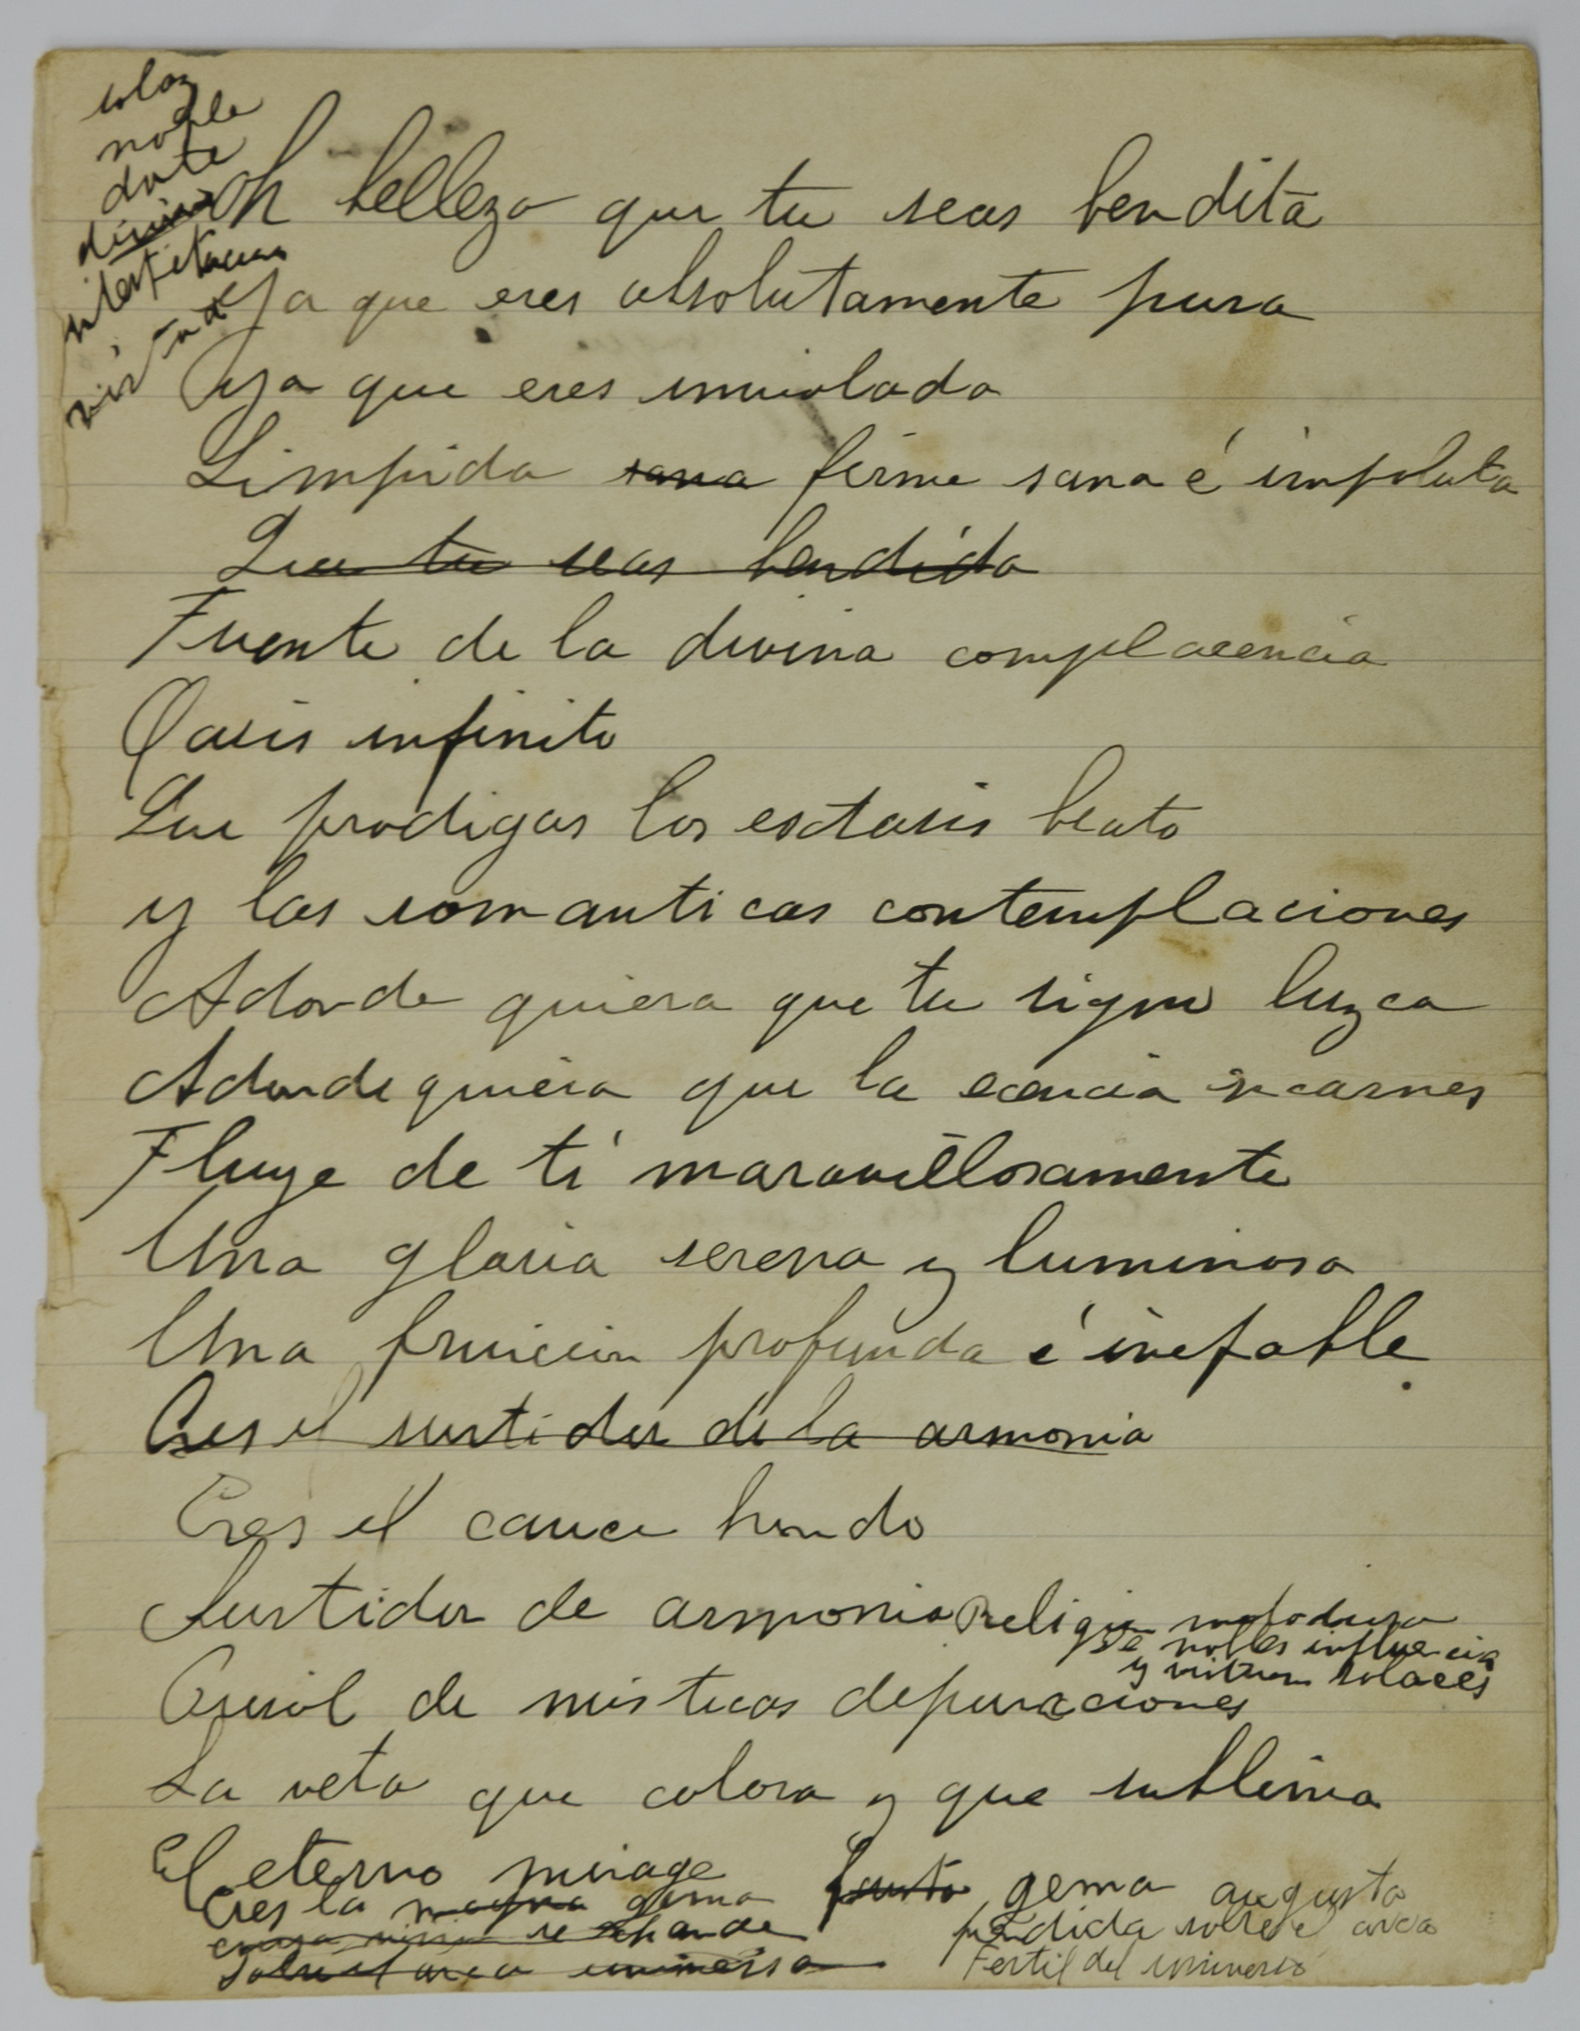 solaz
noble
date
divina
interpretacion
virtud
Oh belleza que tu seas bendita
Ya que eres absolutamente pura
Ya que eres inviolada
Limpida sana firme sana é impoluta
Que tu seas bendida
Fuente de la divina complacencia
Oasis infinito
Que prodigas los extasis beato
y las romanticas contemplaciones
Adonde quiera que tu signo luzca
Adondequiera que la esencia encarnes
Fluye de ti maravillosamente
Una gloria serena y luminosa
Una fruicion profunda é inefable.
Eres el surtidor de la armonia
Eres el cauce hondo
Surtidor de armonia Religion
de nobles influencia
y solaces
Crisol de misticas depuraciones
La veta que colora y que sublima
El eterno mirage
Eres la magna gema fausta gema augusta
cuya se expande pendida sobre el arca
Sobre el arca universa Fertil del universo